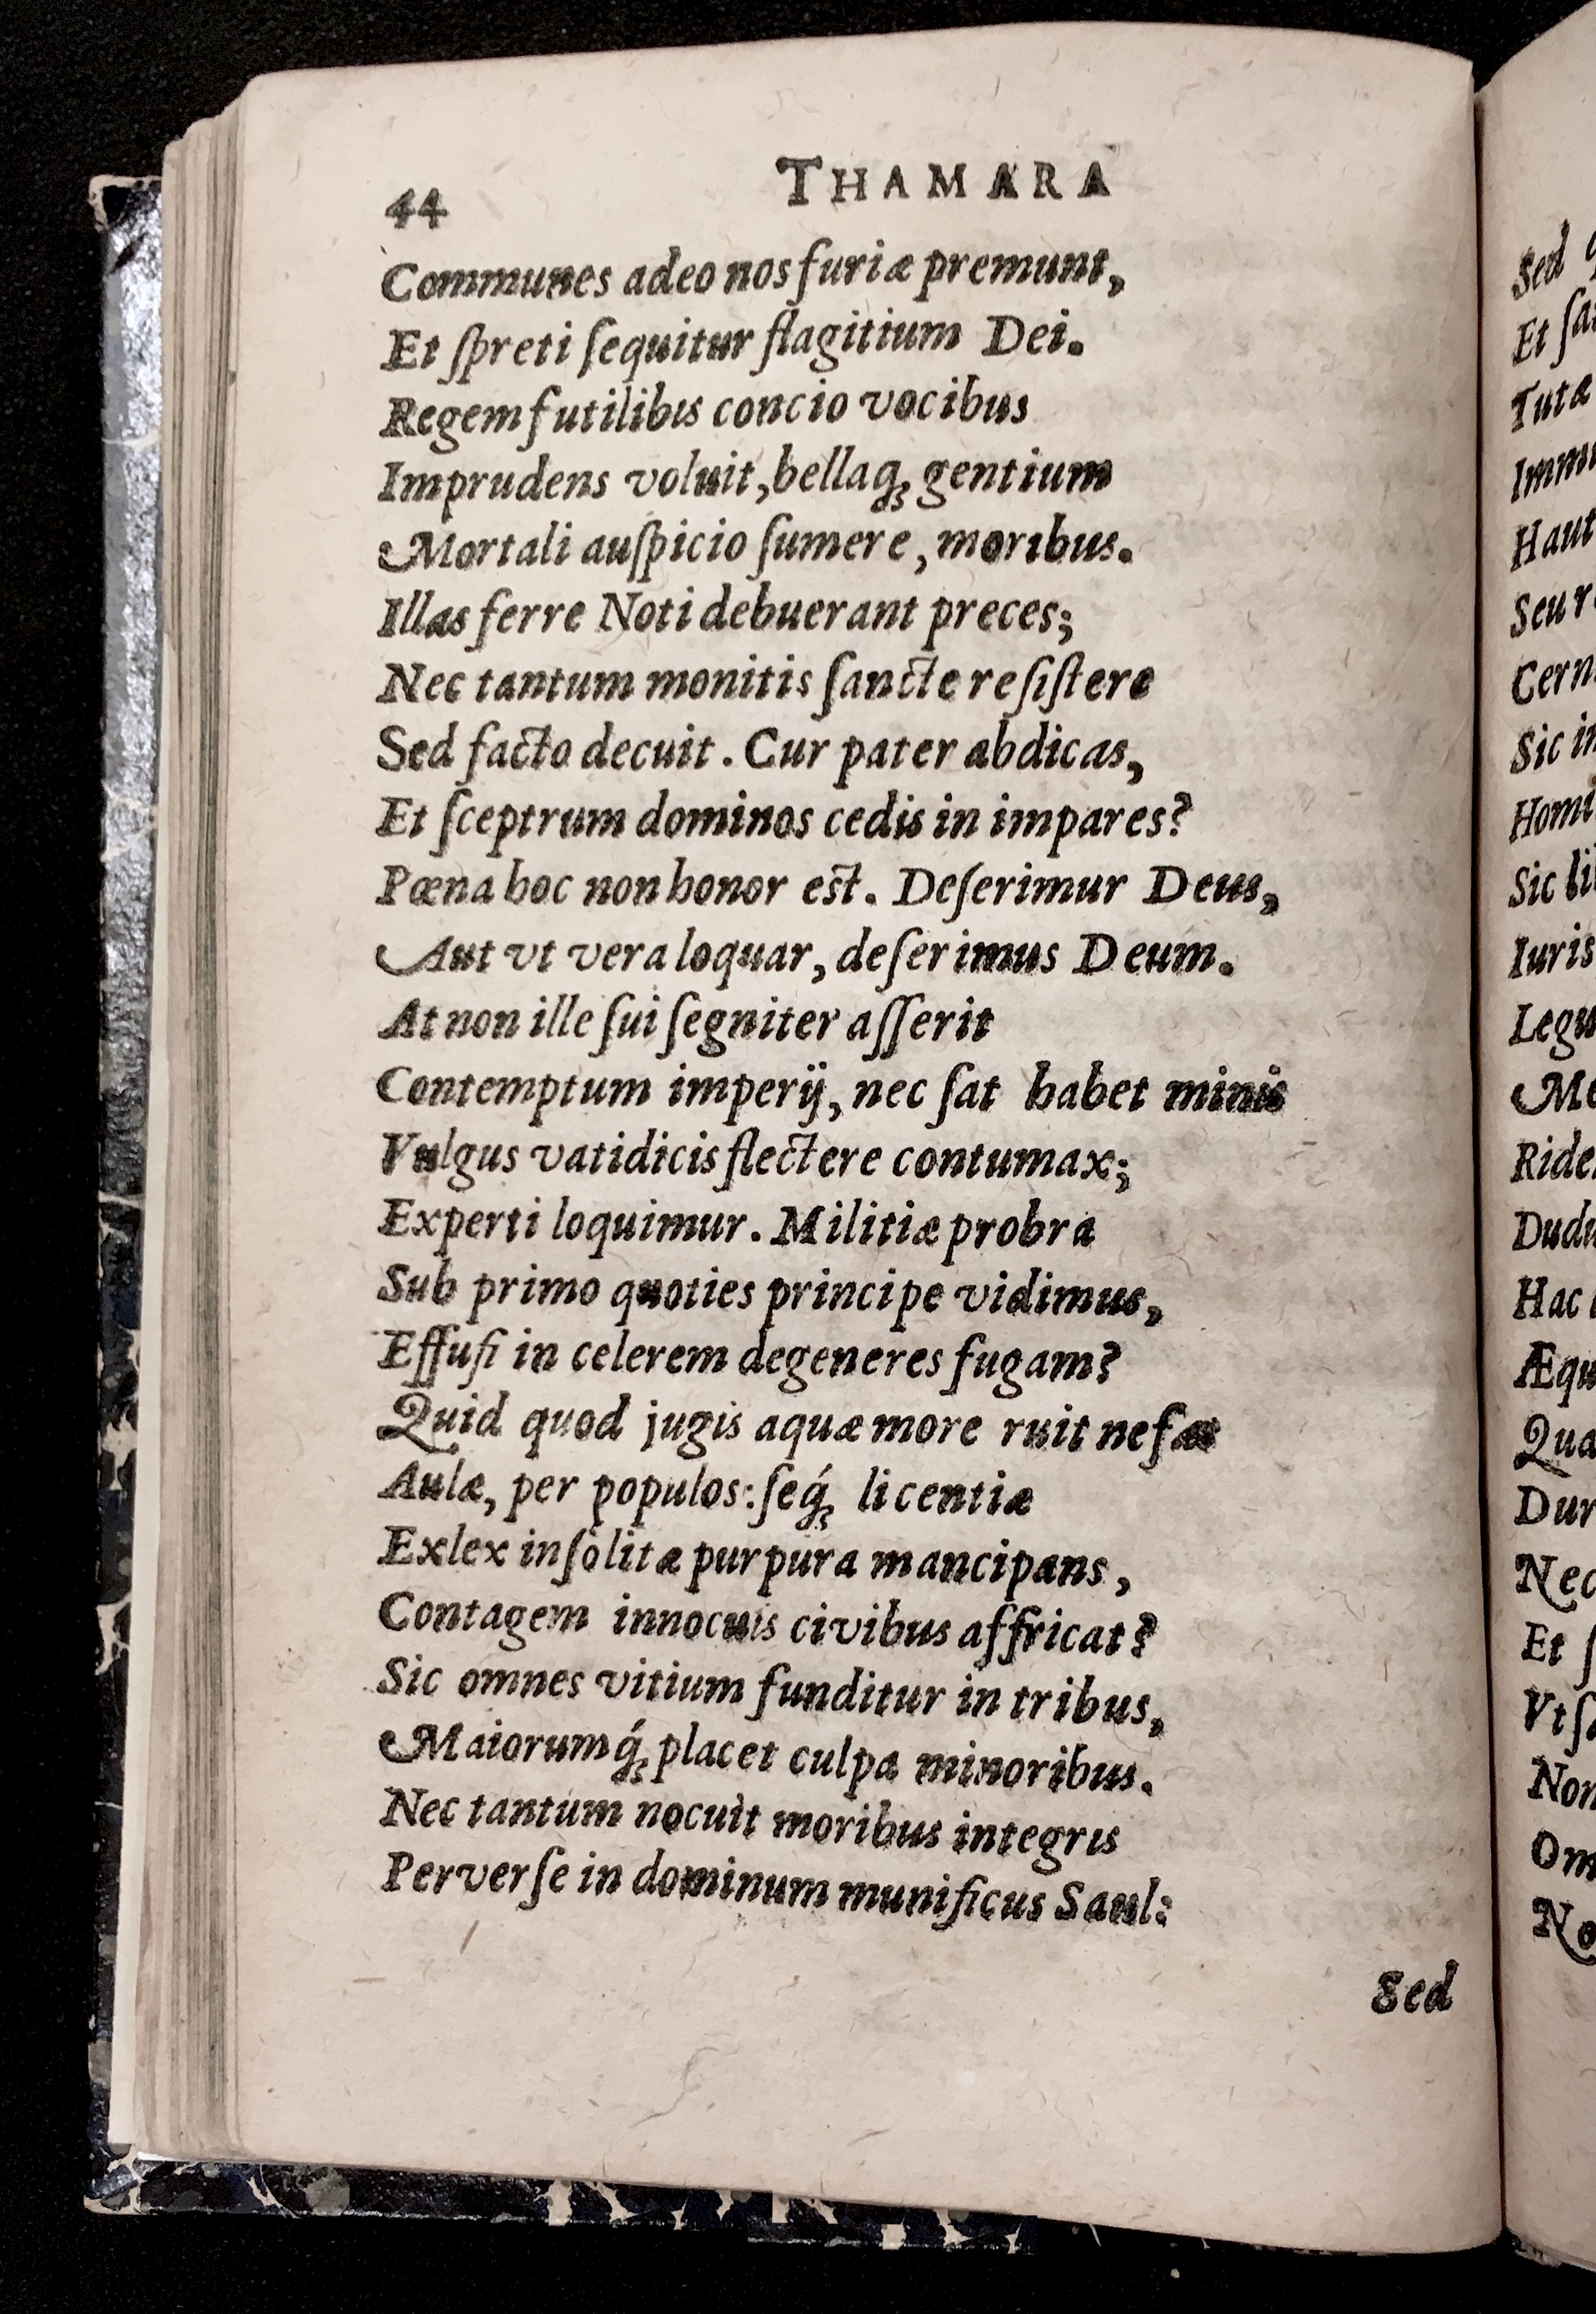 44 THAMARA
Communes adeo nos furiæ premunt,
Et ſpreti ſequitur flagitium Dei.
Regem futilibus concio vocibus
Imprudens voluit, bellaq; gentium
Mortali auſpicio ſumere, moribus.
Illas ferre Noti debuerant preces;
Nec tantum monitis ſancte reſiſtere
Sed facto decuit. Cur pater abdicas,
Et ſceptrum dominos cedis in impares?
Pœna hoc non honor est. Deſerimur Deus,
Aut vt vera loquar, deſerimus Deum.
At non ille ſui ſegniter aſſerit
Contemptum imperij, nec ſat habet minis
Vulgus vatidicis flectere contumax;
Experti loquimur. Militiæ probra
Sub primo quoties principe vidimus,
Effuſi in celerem degeneres fugam?
Quid quod jugis aquæ more ruit nefas
Aulæ, per populos: ſeq́; licentiæ
Exlex inſolitæ purpura mancipans,
Contagem innocuis civibus affricat?
Sic omnes vitium funditur in tribus,
Maiorumq́; placet culpa minoribus.
Nec tantum nocuit moribus integris
Perverſe in dominum munificus Saul:
Sed
Sed
Et
Tutæ
Haut
Seu
Sic
Sic
Iuris
Hac
Nec
Et